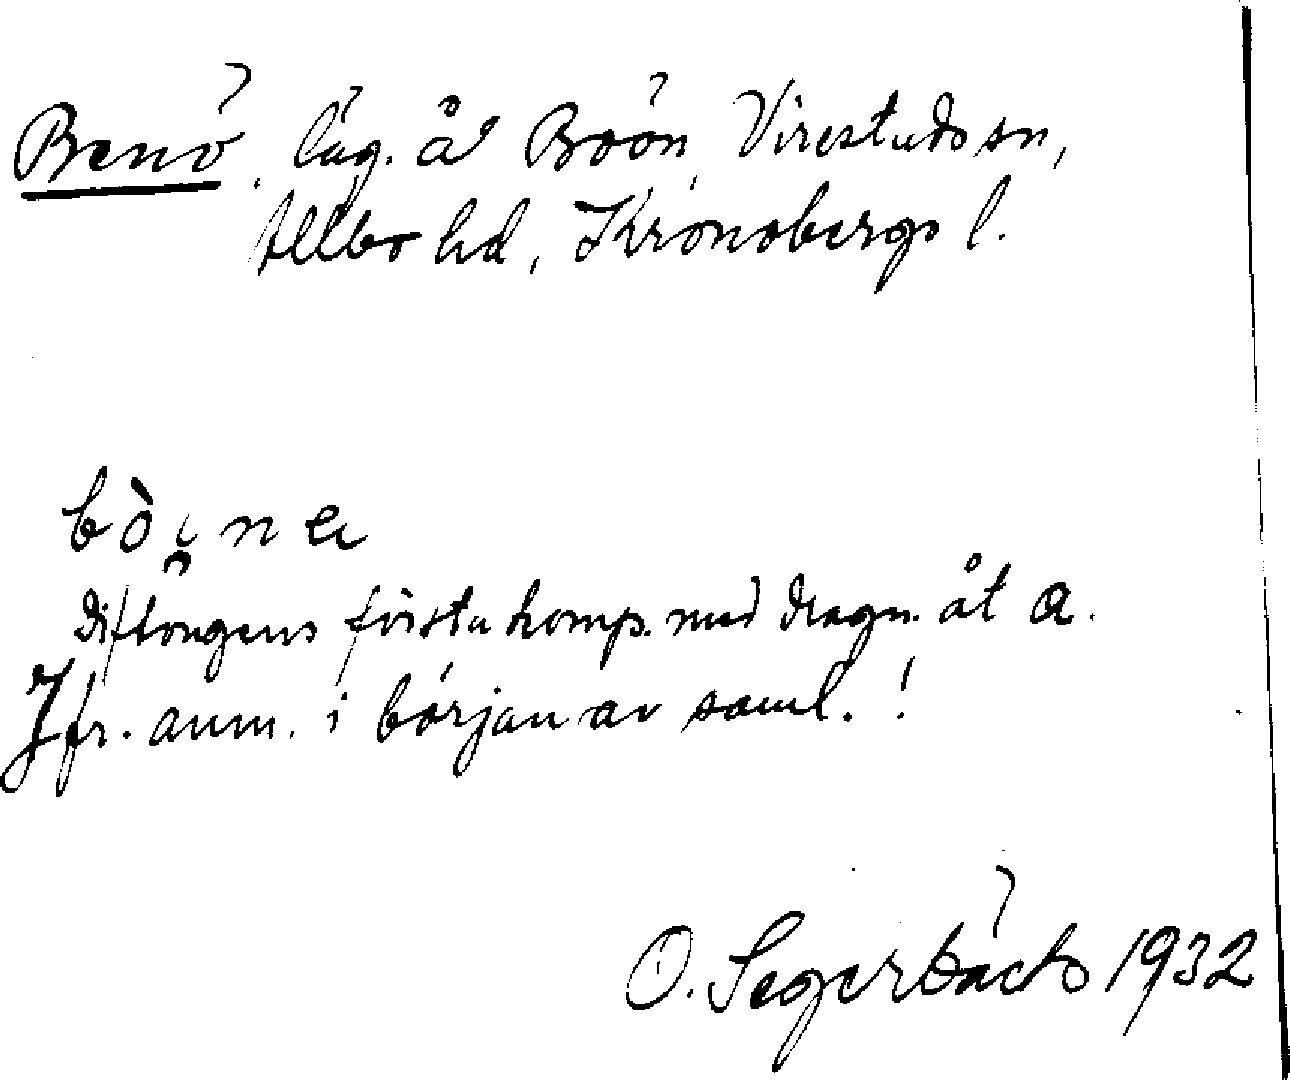 Benö, läg. å Böön, Virestads sn,
Allbo hd, Kronobergs l.
bò i̯ n a
Diftongens första komp. med dragn. åt a.
Jfr. anm. i början av saml. !
O. Segerbäck 1932